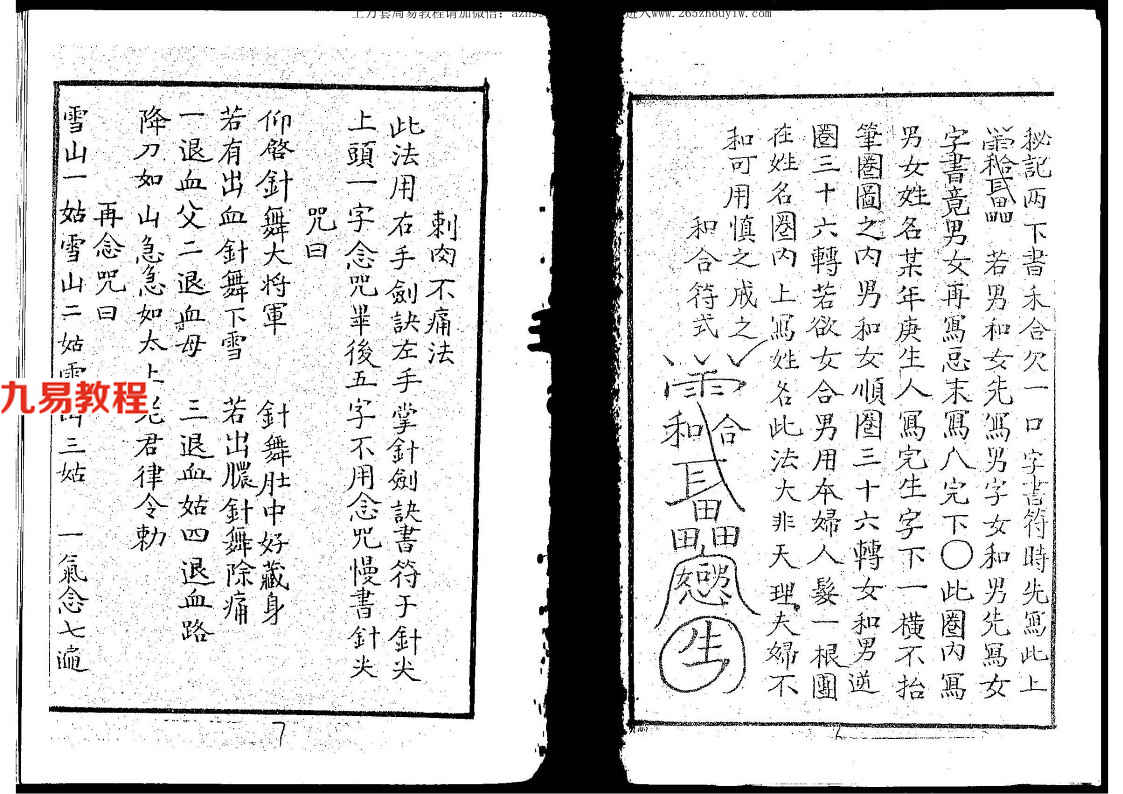 秘記丙下書禾合欠一口字書符時先寫此上
若男和女先寫男字女和男先寫女
字書竟男女再寫忌末寫八完下〇此圈內寫
男女姓名某年庚生人寫完生字下一橫不抬
筆圈圖之內男和女順圈三十六轉女和男逆
圈三十六轉若欲女合男用本婦人髮一根團
在姓名圈內上寫姓名此法大非天理夫婦不
和可用慎之戒之
和合符式
和合
田田田
生
刺肉不痛法
此法用右手劍訣左手掌針劍訣書符于針尖
上頭一字念咒畢後五字不用念咒慢書針尖
咒曰
仰啓針舞大将軍 針舞肚中好藏身
若有出血針舞下雪 若出膿針舞除痛
一退血父二退血母 三退血姑四退血路
降刀如山急急如太上老君律令勅
再念咒曰
雪山一姑雪山二姑雪山三姑 一氣念七遍
7
九易教程